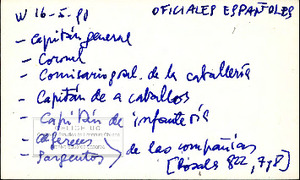 W 16-X-90 OFICIALES ESPAÑOLES
- Capitán general
- Coronel
- Comisario gral. de la caballería
- Capitán de a caballos
- Capitán de infantería
- Alféreces
- Sargentos
de las compañías
[Rosal 822, 7 y 8]